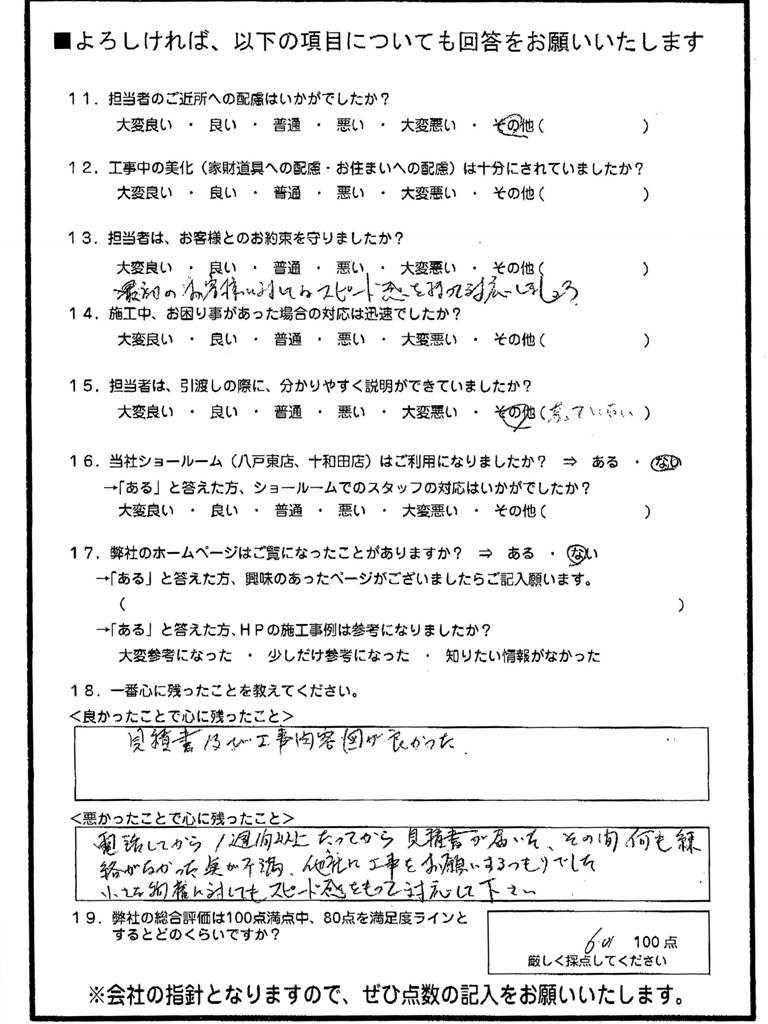 ■よろしければ、以下の項目についても回答をお願いいたします
11．担当者のご近所への配慮はいかがでしたか？
大変良い ・ 良い ・ 普通 ・ 悪い ・ 大変悪い ・ その他（　　　　　　）
12．工事中の美化（家財道具への配慮・お住まいへの配慮）は十分にされていましたか？
大変良い ・ 良い ・ 普通 ・ 悪い ・ 大変悪い ・ その他（　　　　　　）
13．担当者は、お客様とのお約束を守りましたか？
大変良い ・ 良い ・ 普通 ・ 悪い ・ 大変悪い ・ その他（　　　　　　）
最初のお客様に対してはスピード感を持って対応しましょう
14．施工中、お困り事があった場合の対応は迅速でしたか？
大変良い ・ 良い ・ 普通 ・ 悪い ・ 大変悪い ・ その他（　　　　　　）
15．担当者は、引渡しの際に、分かりやすく説明ができていましたか？
大変良い ・ 良い ・ 普通 ・ 悪い ・ 大変悪い ・ その他（ていない）
16．当社ショールーム（八戸東店、十和田店）はご利用になりましたか？ ⇒ ある ・ ない
→「ある」と答えた方、ショールームでのスタッフの対応はいかがでしたか？
大変良い ・ 良い ・ 普通 ・ 悪い ・ 大変悪い ・ その他（　　　　　　）
17．弊社のホームページはご覧になったことがありますか？ ⇒ ある ・ ない
→「ある」と答えた方、興味のあったページがございましたらご記入願います。
（　　　　　　）
→「ある」と答えた方、ＨＰの施工事例は参考になりましたか？
大変参考になった ・ 少しだけ参考になった ・ 知りたい情報がなかった
18．一番心に残ったことを教えてください。
＜良かったことで心に残ったこと＞
見積書及び工事内容図が良かった．
＜悪かったことで心に残ったこと＞
電話してから1週間以上たってから見積書が届いた、その間何も連
絡がなかった点が不満、他社に工事をお願いするつもりでした
小さな客様に対してもスピード感をもって対応して下さい
19．弊社の総合評価は100点満点中、80点を満足度ラインと
するとどのくらいですか？
100点
厳しく採点してください
※会社の指針となりますので、ぜひ点数の記入をお願いいたします。